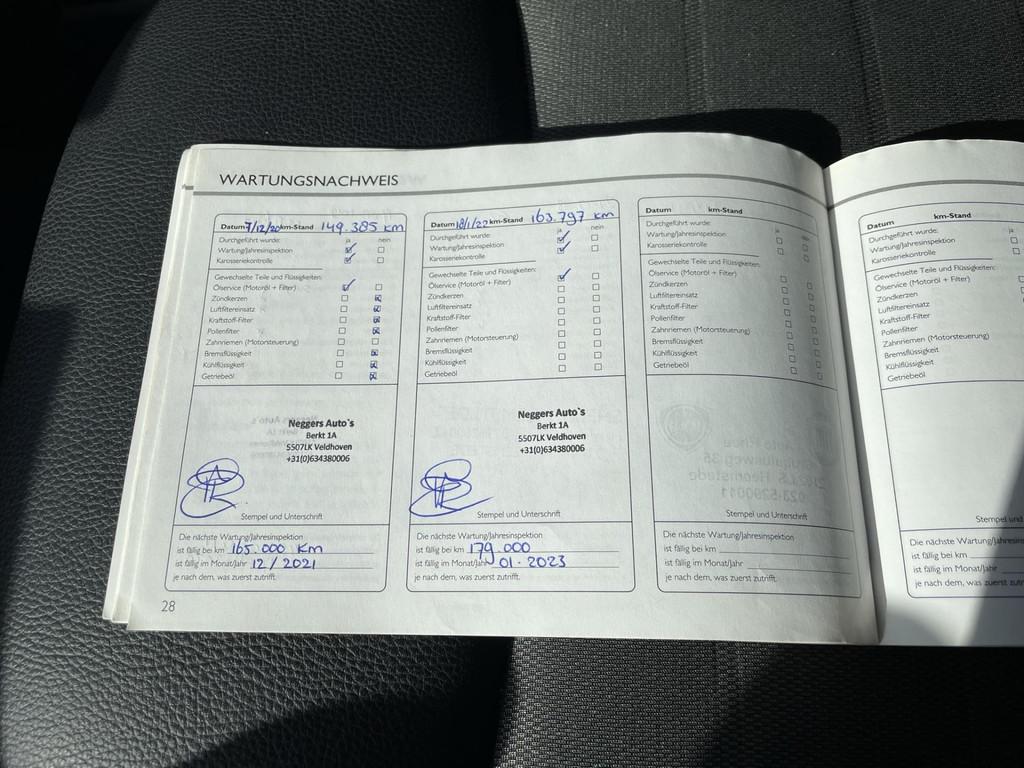 WARTUNGSNACHWEIS
Datum 7/12/20 km-Stand 149.385 km
Durchgeführt wurde: ja nein
Wartung/Jahresinspektion
Karosseriekontrolle
Gewechselte Teile und Flüssigkeiten:
Ölservice (Motoröl + Filter)
Zündkerzen
Luftfiltereinsatz
Kraftstoff-Filter
Pollenfilter
Zahnriemen (Motorsteuerung)
Bremsflüssigkeit
Kühlflüssigkeit
Getriebeöl
Neggers Auto`s
Berkt 1A
5507LK Veldhoven
+31(0)634380006
Stempel und Unterschrift
Die nächste Wartung/Jahresinspektion
ist fällig bei km 165.000 km
ist fällig im Monat/Jahr 12/2021
je nach dem, was zuerst zutrifft.
28
Datum 18/1/22 km-Stand 163.797 km
Durchgeführt wurde: ja nein
Wartung/Jahresinspektion
Karosseriekontrolle
Gewechselte Teile und Flüssigkeiten:
Ölservice (Motoröl + Filter)
Zündkerzen
Luftfiltereinsatz
Kraftstoff-Filter
Pollenfilter
Zahnriemen (Motorsteuerung)
Bremsflüssigkeit
Kühlflüssigkeit
Getriebeöl
Neggers Auto`s
Berkt 1A
5507LK Veldhoven
+31(0)634380006
Stempel und Unterschrift
Die nächste Wartung/Jahresinspektion
ist fällig bei km 179.000
ist fällig im Monat/Jahr 01.2023
je nach dem, was zuerst zutrifft.
Datum km-Stand
Durchgeführt wurde: ja nein
Wartung/Jahresinspektion
Karosseriekontrolle
Gewechselte Teile und Flüssigkeiten:
Ölservice (Motoröl + Filter)
Zündkerzen
Luftfiltereinsatz
Kraftstoff-Filter
Pollenfilter
Zahnriemen (Motorsteuerung)
Bremsflüssigkeit
Kühlflüssigkeit
Getriebeöl
Stempel und Unterschrift
Die nächste Wartung/Jahresinspektion
ist fällig bei km
ist fällig im Monat/Jahr
je nach dem, was zuerst zutrifft.
Datum km-Stand
Durchgeführt wurde: ja
Wartung/Jahresinspektion
Karosseriekontrolle
Gewechselte Teile und Flüssigkeiten:
Ölservice (Motoröl + Filter)
Zündkerzen
Luftfiltereinsatz
Kraftstoff-Filter
Pollenfilter
Zahnriemen (Motorsteuerung)
Bremsflüssigkeit
Kühlflüssigkeit
Getriebeöl
Stempel und
Die nächste Wartung/Jahresins
ist fällig bei km
ist fällig im Monat/Jahr
je nach dem, was zuerst zutr